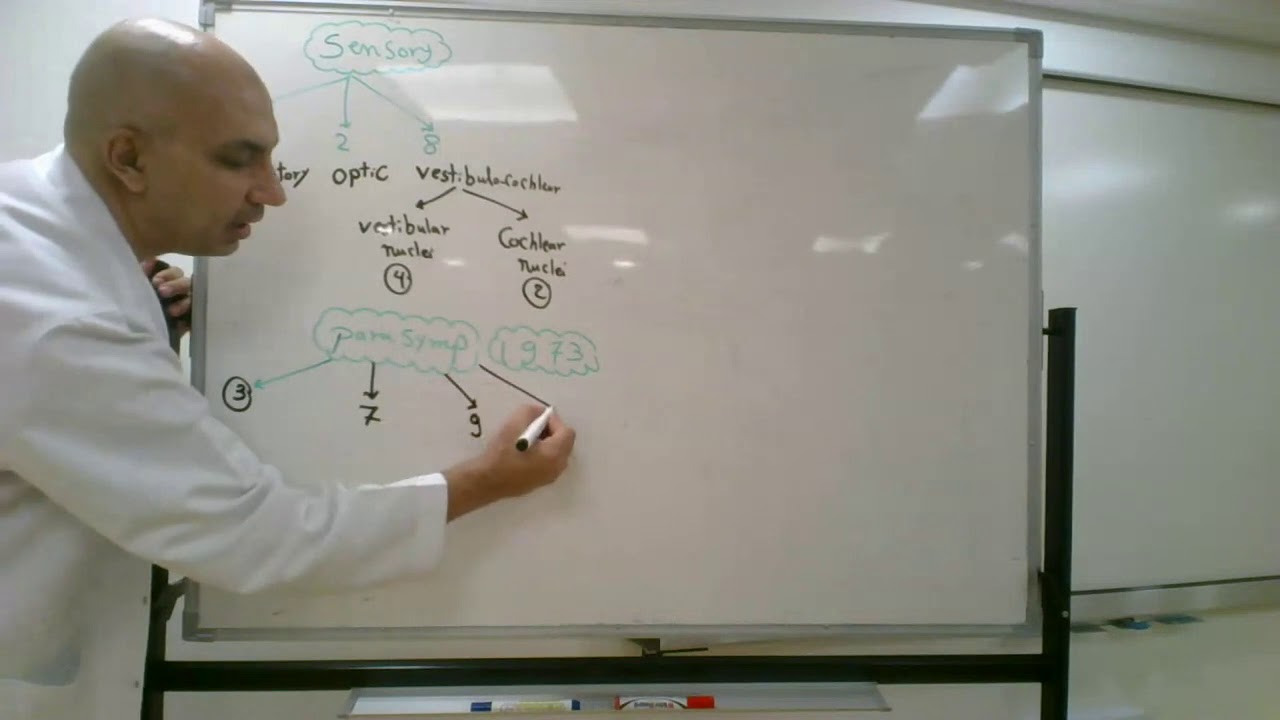 Sensory
2 8
tory optic vestibulo-cochlear
vestibular
nuclei
4
Cochlear
nuclei
2
para symp 1973
3 7 9